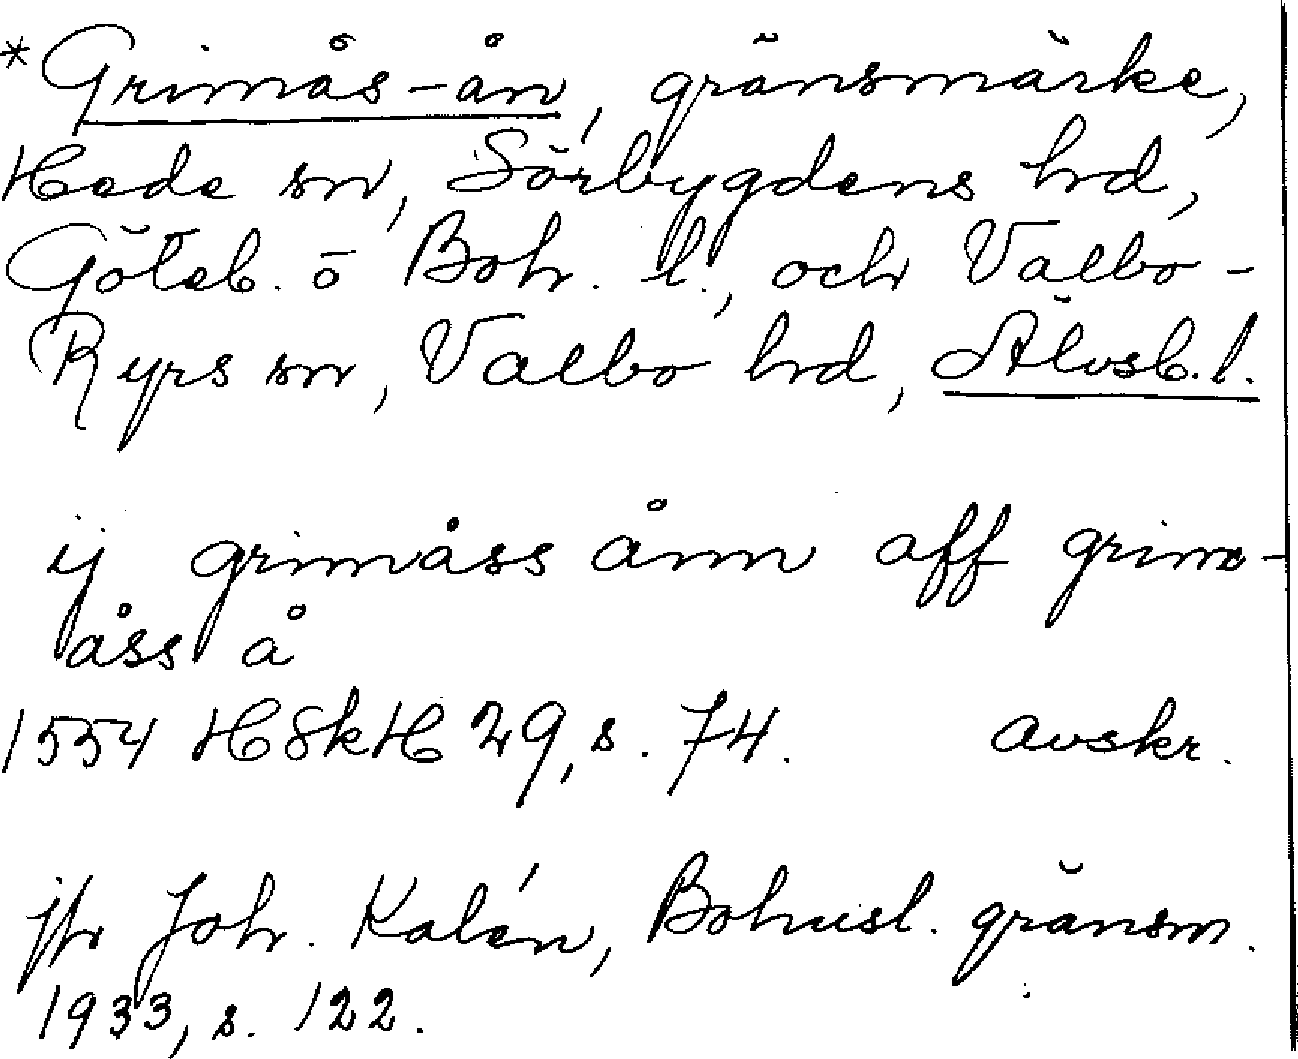 *Grimås-ån, gränsmärke,
Hede sn, Sörbygdens hd,
Göteb. o Boh. l., och Valbo-
Ryrs sn, Valbo hd, Älvsb. l.
ij grimåss ånn aff grim-
åss å
1554 HSkH 29, s. 74. avskr.
jfr Joh. Kalén, Bohusl. gränsm.
1933, s. 122.